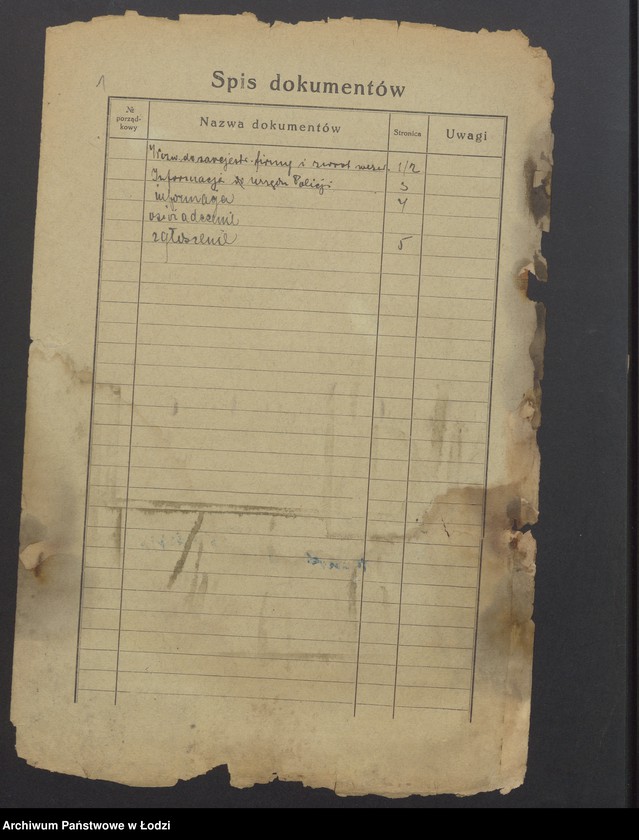 1
Spis dokumentów
№ porządkowy
Nazwa dokumentów
Stronica
Uwagi
Wezw. do zarejestr. firmy i zwrot wezw. 1/2
Informacja z Urzędu Policji 3
informacja 4
oświadczenie
zgłoszenie 5
Archiwum Państwowe w Łodzi